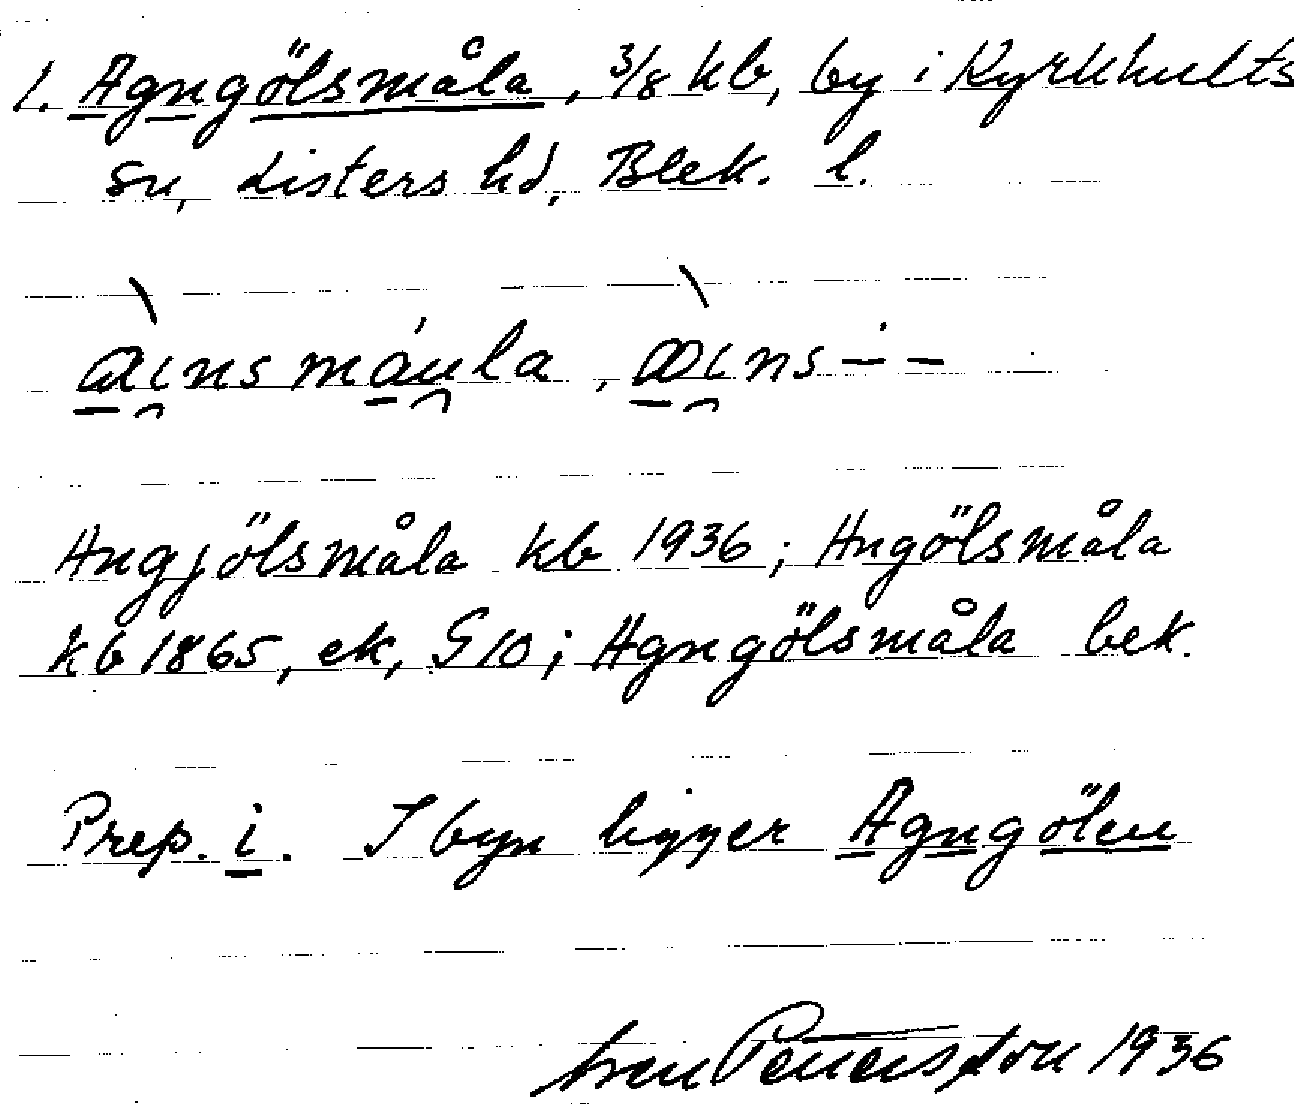 1. Agngölsmåla, 3/8 kb, by i Kyrkhults
sn, Listers hd, Blek. l.
àinsmáula, òins- -
Angjölsmåla kb 1936; Angölsmåla
kb 1865, ek, G 10; Agngölsmåla bek.
Prep. i. I byn ligger Agngölen
Sven Pettersson 1936